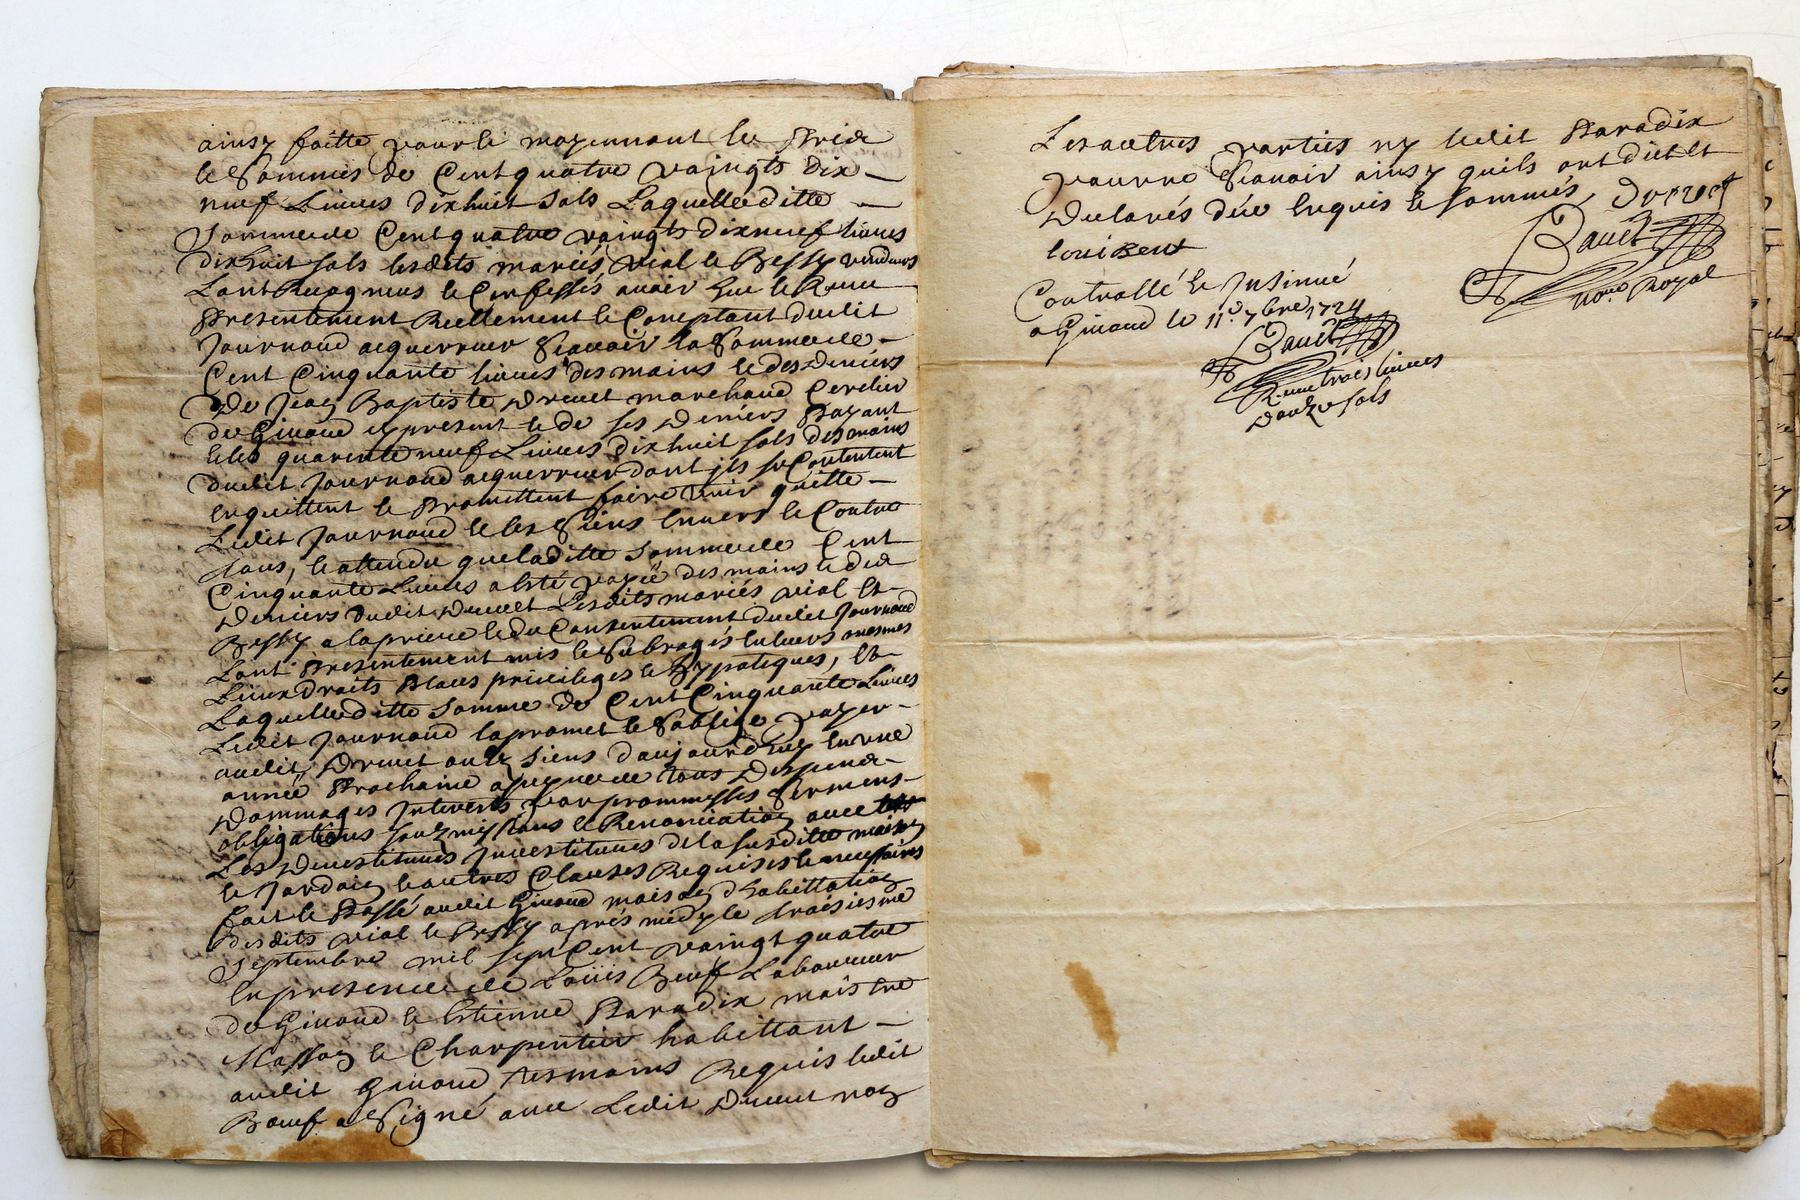 ainsy faitte pour le moyennant le Prix
la Somme de Cent quatre vaingts dix
neuf Livres dixhuit sols Laquelleditte
Sommede Cent quatre vaingts dixneuf livres
dixhuit sols lesdits mariés vial le Bessy vendeurs
Lont Recognus le Confessés avoir Heu le Receu
Presentement Reellement le Comptant dudit
Journaud acquerreur Scavoir la Sommede
Cent Cinquante livres des mains le des Deniers
De Jean Baptiste Drevet marchand
de Givord y present le de ses Deniers Payant
le les quarente neuf Livres dixhuit sols des mains
dudit Journaud acquerreur dont jls se Contentent
lenquittent le Promettent faire tenir quitte
Ledit Journaud le les Siens Envers le Contre
tous, le attendu que laditte Sommede Cent
Cinquante Livres a lesté payée des mains le des
Deniers dudit Drevet Lesdits mariés vial Et
Bessy a la priere le du Consentement dudit Journaud
Lont Presentement mis le Subrogés En leurs mesmes
Lieux droits Places privileges le Hypoteques, Et
Laquelleditte Somme de Cent Cinquante Livres
Ledit Journaud la promet le Soblige payer
audit Drevet ou es Siens daujourdhuy En une
année Prochaine a peyne de tous Despens
Dommages Interets par prommesses Serments
obligations soubzmissions le Renonciation avec
Les Devestitures Investitures de la susditte maison
le Jardain le autres Clauses Requises le necessaires
fait le Passé audit Givord maison dhabittation
Desdits vial le Bessy aprés midy le troisiesme
Septembre mil sept Cent vaingt quatre
En presence de Loüis Beuf Laboureur
de Givord le Estienne Paradix maistre
Masson le Charpentier habittant
audit Givord, tesmoins Requis ledit
Boeuf a Signé avec Ledit Drevet non
Les autres parties ny ledit Paradix
pour ne Scavoir ainsy quils ont dict Et
Declarés de ce Enquis le Sommés, Drevet
loui Beuf
Bauet
no.re Royal
Controllé le Insinué
a Givord le 11.e 7bre 1724
Bauet
R. trois livres
douze sols